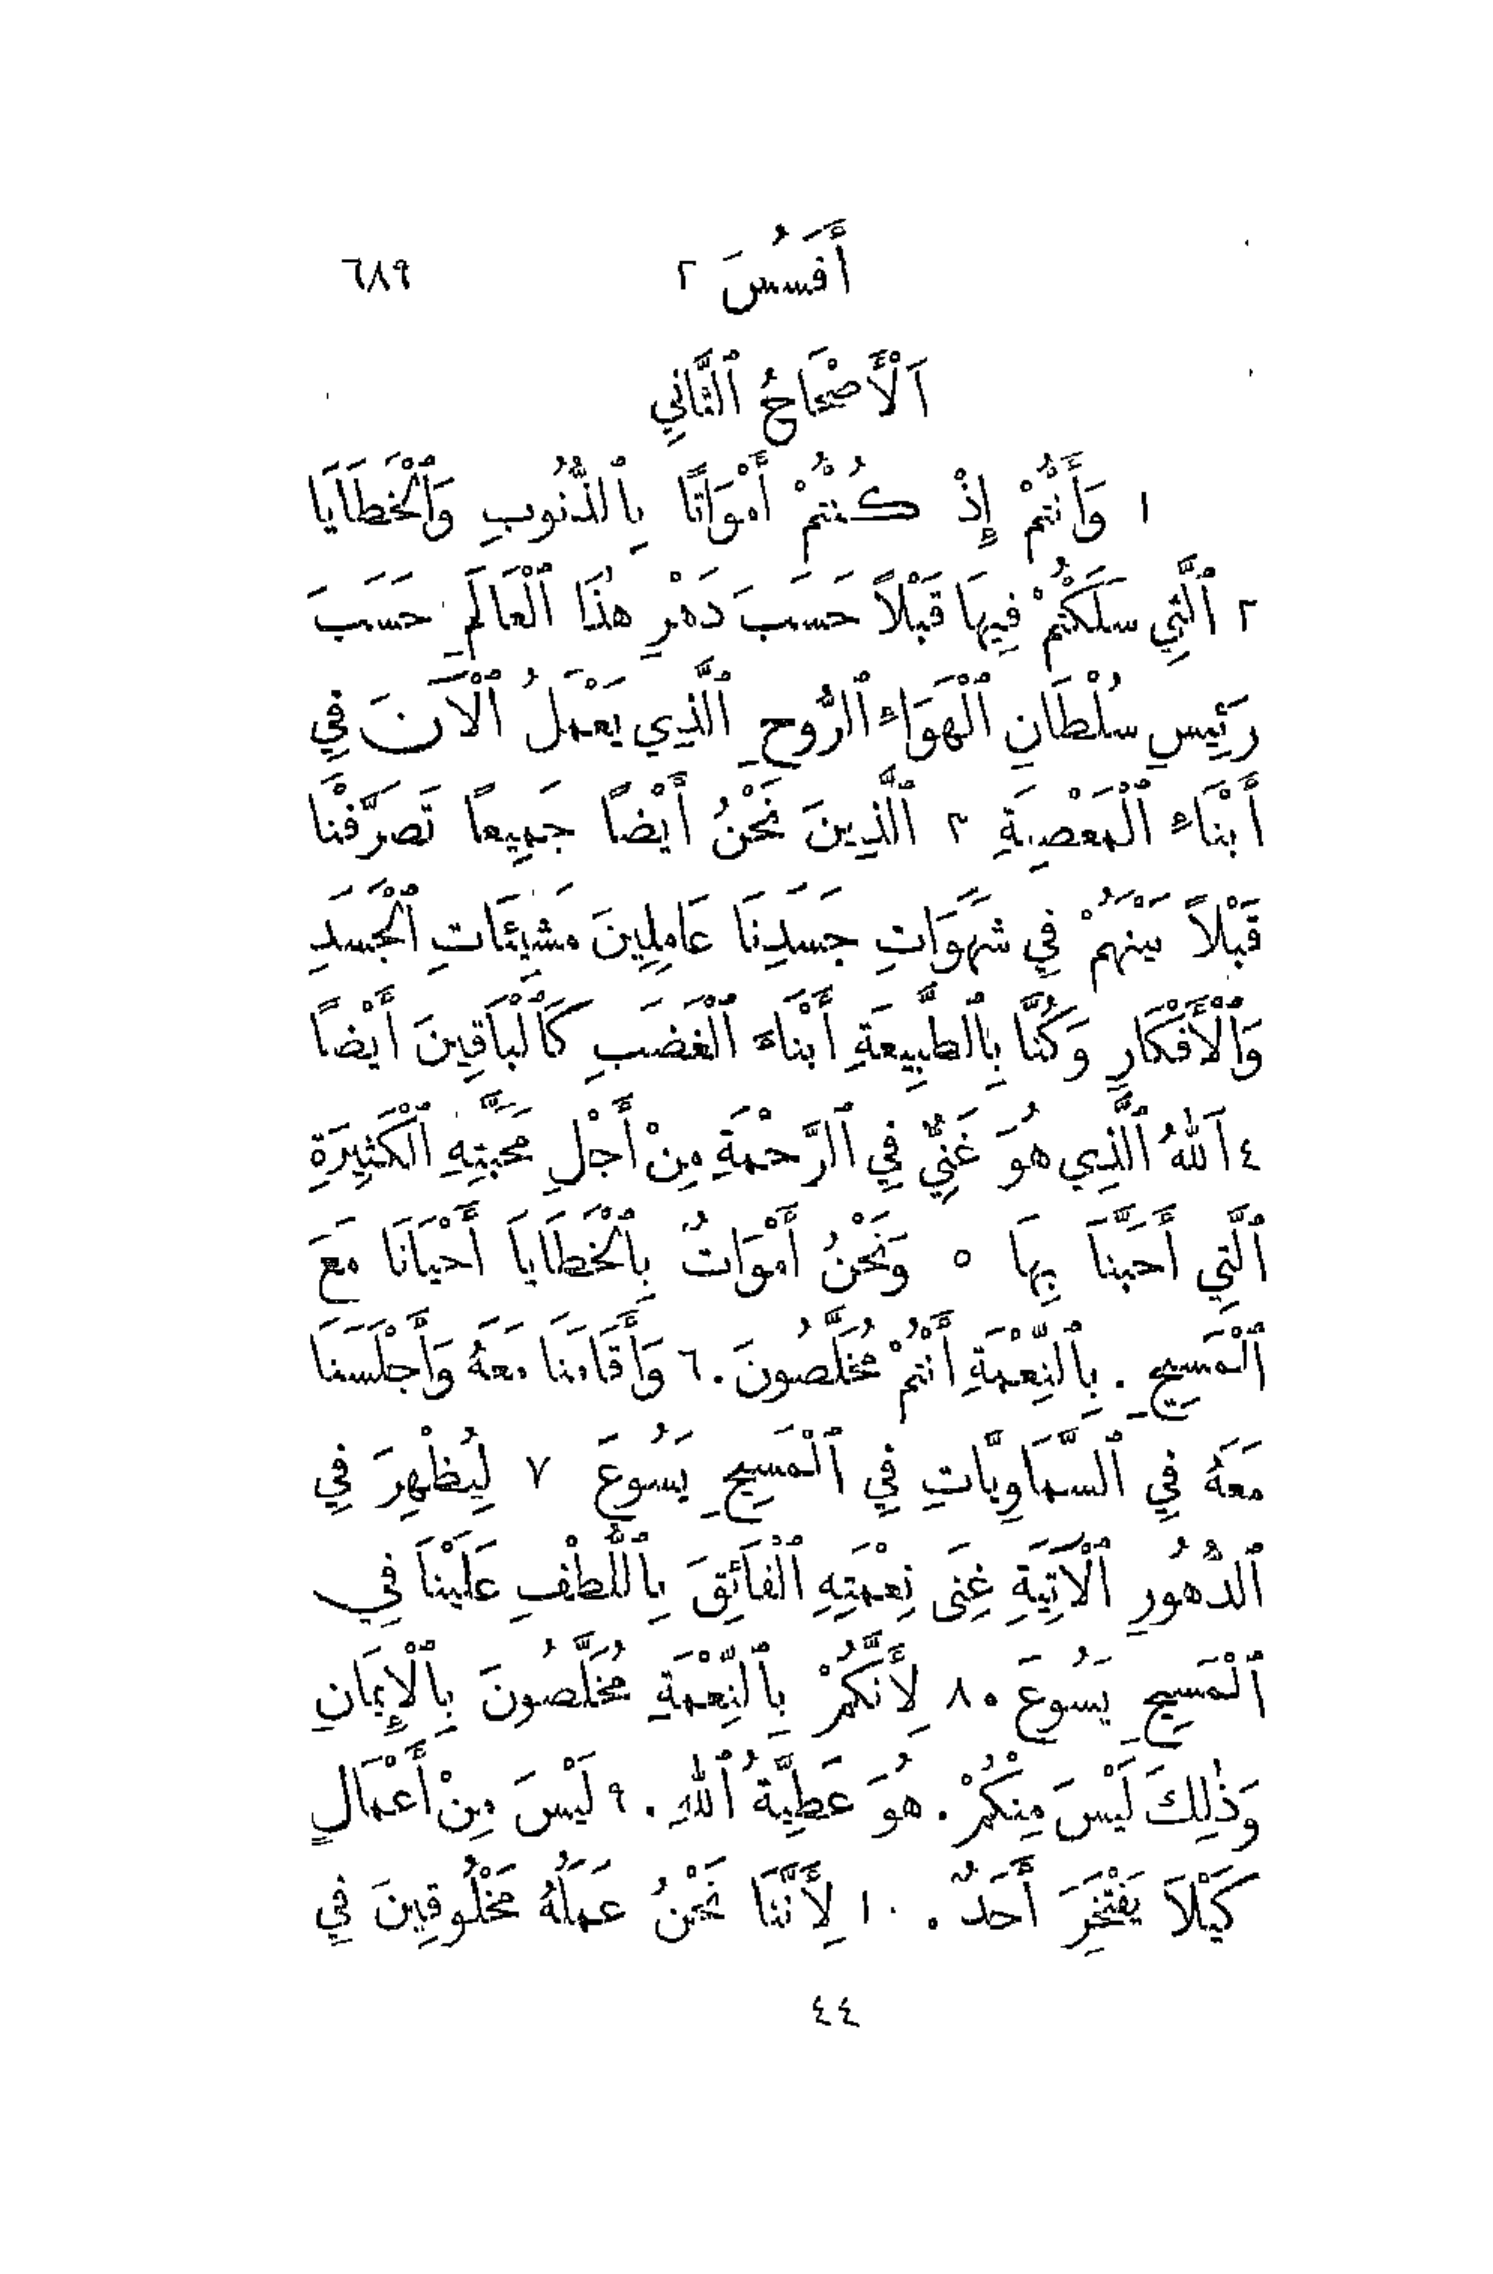 أَفَسُسَ ٢ ٦٨٩
اَلْأَصْحَاحُ ٱلثَّانِي
١ وَأَنْتُمْ إِذْ كُنْتُمْ أَمْوَاتًا بِٱلذُّنُوبِ وَٱلْخَطَايَا
٢ ٱلَّتِي سَلَكْتُمْ فِيهَا قَبْلاً حَسَبَ دَهْرِ هٰذَا ٱلْعَالَمِ حَسَبَ
رَئِيسِ سُلْطَانِ ٱلْهَوَاءِ ٱلرُّوحِ ٱلَّذِي يَعْمَلُ ٱلْآنَ فِي
أَبْنَاءِ ٱلْمَعْصِيَةِ ٣ ٱلَّذِينَ نَحْنُ أَيْضاً جَمِيعاً تَصَرَّفْنَا
قَبْلاً بَيْنَهُمْ فِي شَهَوَاتِ جَسَدِنَا عَامِلِينَ مَشِيئَاتِ ٱلْجَسَدِ
وَٱلْأَفْكَارِ وَكُنَّا بِٱلطَّبِيعَةِ أَبْنَاءَ ٱلْغَضَبِ كَٱلْبَاقِينَ أَيْضاً
٤ اَللهُ ٱلَّذِي هُوَ غَنِيٌّ فِي ٱلرَّحْمَةِ مِنْ أَجْلِ مَحَبَّتِهِ ٱلْكَثِيرَةِ
ٱلَّتِي أَحَبَّنَا بِهَا ٥ وَنَحْنُ أَمْوَاتٌ بِٱلْخَطَايَا أَحْيَانَا مَعَ
ٱلْمَسِيحِ. بِٱلنِّعْمَةِ أَنْتُمْ مُخَلَّصُونَ. ٦ وَأَقَامَنَا مَعَهُ وَأَجْلَسَنَا
مَعَهُ فِي ٱلسَّمَاوِيَّاتِ فِي ٱلْمَسِيحِ يَسُوعَ ٧ لِيُظْهِرَ فِي
ٱلدُّهُورِ ٱلْآتِيَةِ غِنَى نِعْمَتِهِ ٱلْفَائِقَ بِٱللُّطْفِ عَلَيْنَا فِي
ٱلْمَسِيحِ يَسُوعَ. ٨ لِأَنَّكُمْ بِٱلنِّعْمَةِ مُخَلَّصُونَ بِٱلْإِيمَانِ
وَذٰلِكَ لَيْسَ مِنْكُمْ. هُوَ عَطِيَّةُ ٱللهِ. ٩ لَيْسَ مِنْ أَعْمَالٍ
كَيْلَا يَفْتَخِرَ أَحَدٌ. ١٠ لِأَنَّنَا نَحْنُ عَمَلُهُ مَخْلُوقِينَ فِي
٤٤